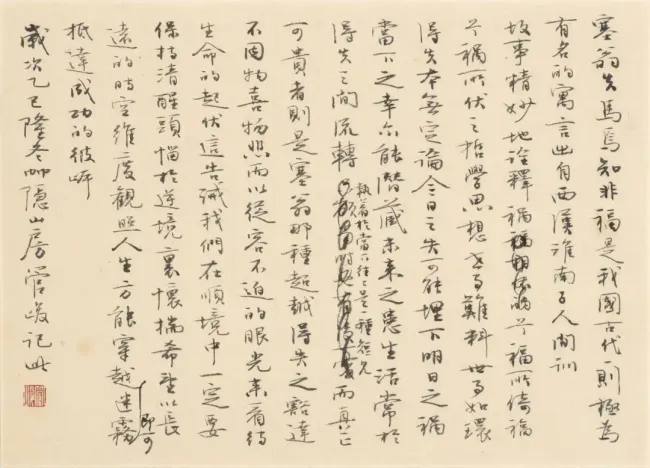 塞翁失馬焉知非福是我國古代一則極為
有名的寓言出自西漢淮南子人間訓
故事精妙地詮釋禍兮福所倚福
兮禍所伏之哲學思想難料世事如環
得失本無定論今日之失可能埋下明日之福
當下之幸亦能潛藏未來之患生活常於
得失之間流轉執着於當下往往是一種短見而真正
可貴者則是塞翁那種超越得失之豁達
不因物喜物悲而以從容不迫的眼光來看待
生命的起伏這告誡我們在順境中一定要
保持清醒頭惱於逆境裏懷揣希望以長
遠的時空維度觀照人生方能穿越迷霧即可
抵達成功的彼岸
歲次乙巳隆冬師隱山房管峻記此